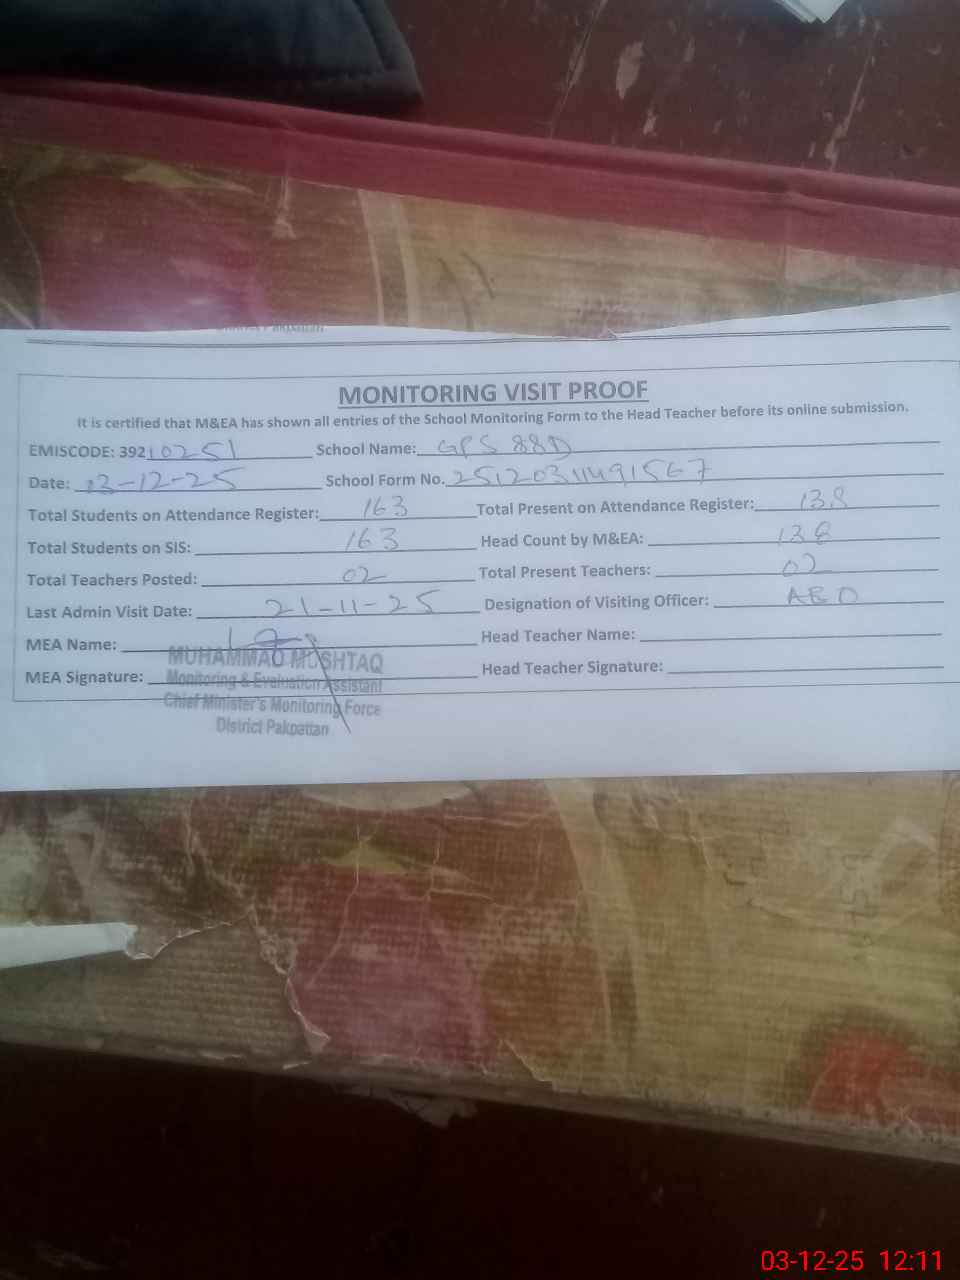 MONITORING VISIT PROOF
It is certified that M&EA has shown all entries of the School Monitoring Form to the Head Teacher before its online submission.
EMISCODE: 39210251 School Name: GPS 88D
Date: 03-12-25 School Form No. 25120311491567
Total Students on Attendance Register: 163 Total Present on Attendance Register: 138
Total Students on SIS: 163 Head Count by M&EA: 138
Total Teachers Posted: 02 Total Present Teachers: 02
Last Admin Visit Date: 21-11-25 Designation of Visiting Officer: AEO
MEA Name: Head Teacher Name:
MEA Signature: Head Teacher Signature:
MUHAMMAD MUSHTAQ
Monitoring & Evaluation Assistant
Chief Minister's Monitoring Force
District Pakpattan
03-12-25 12:11